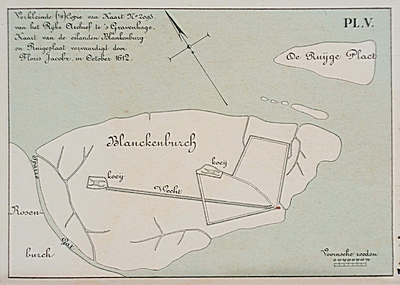 Verkleinde Copie van Kaart No 2095.
van het Ryks Archief te 's Gravenhage.
Kaart van de eilanden Blankenburg
en Ruigeplaat vervaardigd door
Floris Jacobz. in October 1612.
PL. V.
De Ruÿge Plaet
Blanckenburch
koeÿ
koeÿ
Wecht
Rosen
burch
Gat
Voornsche roeden